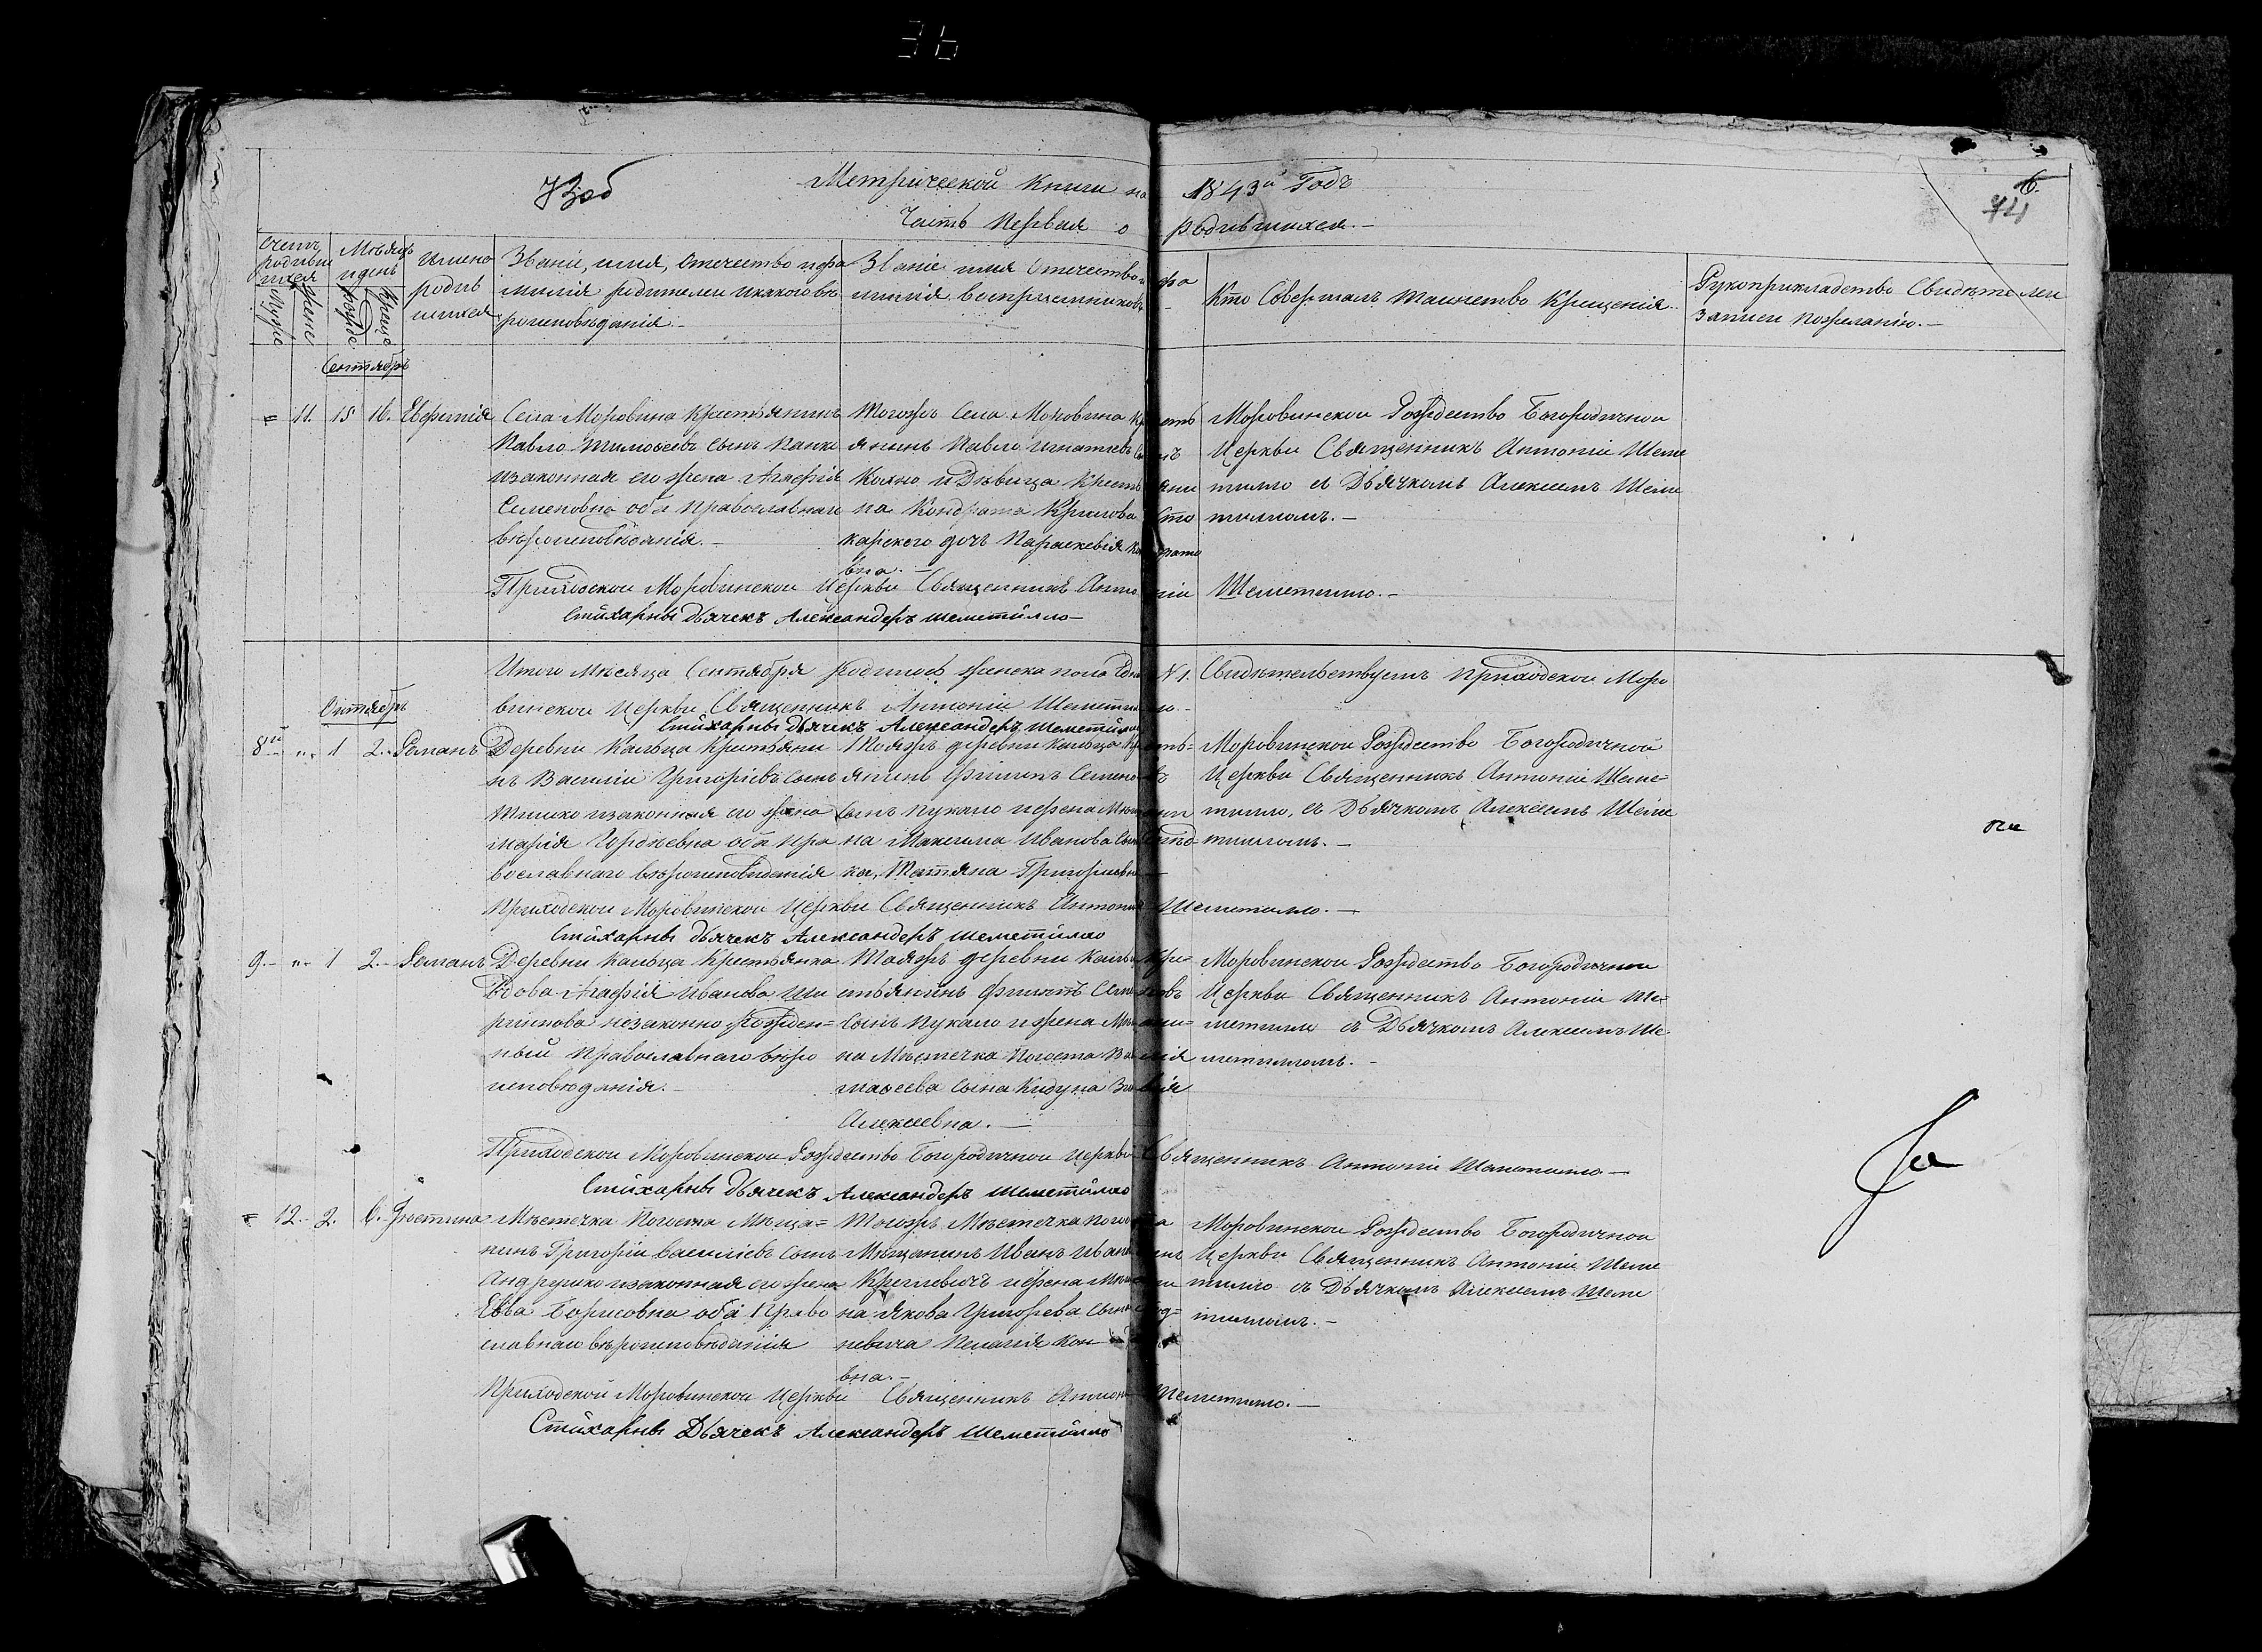 36
73об Метрической Книги на 1843й Годъ
6.
74
Часть Первая о родившихся.
Счетъ родившихся
Муже
Жене
Мѣсяцъ и день
Рожде
Креще
Имена родившихся
Званіе, имя, Отечество и фамилія родителей и какого вѣроисповѣданія.
Званіе имя Отечество и фамилія воспріемниковъ
Кто Совершалъ Таинство Крещенія.
Рукоприкладство Свидѣтелей записи по желанію.
Сентябрь
= 11. 15 16. Евфимія
Села Моровина Крестьянинъ
Павло Тимофеевъ сынъ Панко
и законная его жена Агафія
Семеновна оба Православнаго
вѣроисповѣданія.
Тогожъ Села Моровина Кресть
янинъ Павло Игнатіевъ Сынъ
Кохно и Дѣвица Крестьяни
на Кондрата Крилова Сто
карского дочь Параскевія Кондрато
вна.
Моровинской Рождество Богородичной
Церкви Священникъ Антоній Шеме
тилло съ Дьячкомъ Алексеемъ Шеме
тилломъ.
Приходской Моровинской Церкви Священникъ Антоній Шеметилло.
Стихарный Дьячекъ Александеръ Шеметилло
Итого Мѣсяца Сентября родилось женска пола Една №1. Свидѣтельствуемъ Приходской Моро
винской Церкви Священникъ Антоній Шеметилло.
Стихарный Дьячекъ Александеръ Шеметилло
Октябрь
8й " 1 2. Романъ
Деревни Кальца Крестьяни
нъ Василій Григоріевъ сынъ
Тишко и законная его жена
Марія Гордѣевна оба пра
вославнаго вѣроисповѣданія
Тояжъ деревни Кальца Кресть
янинъ Филипъ Семеновъ
сынъ Пукало и жена Мѣщани
на Максима Иванова Сына
ка, Татяна Григориевна
Моровинской Рождество Богородичной
Церкви Священникъ Антоній Шеме
тилло, съ Дьячкомъ Алексеемъ Шеме
тилломъ.
Приходской Моровинской Церкви Священникъ Антоній Шеметилло.
Стихарный Дьячекъ Александеръ Шеметилло
9. " 1 2. Романъ
Деревни Кальца Крестьянка
Вдова Агафія Иванова
незаконно рожден=
ный Православнаго вѣро
исповѣданія.
Тояжъ деревни Кальца Кре=
стьянинъ Филипъ Семеновъ
сынъ Пукало и жена Мѣщани=
на Мѣстечка Погоста
сына Кидуна
Алексеевна.
Моровинской Рождество Богородичной
Церкви Священникъ Антоній Ше=
метилло съ Дьячкомъ Алексеемъ Ше
метилломъ.
Приходской Моровинской Рождество Богородичной Церкви Священникъ Антоній Шеметилло
Стихарный Дьячекъ Александеръ Шеметилло
= 12. 2. 6. Іустина
Мѣстечка Погоста Мѣща=
нинъ Григорій Василіевъ Сынъ
Андрушко и законная его жена
Евва Борисовна оба Право
славнаго вѣроисповѣданія
Тогожъ Мѣстечка Погоста
Мѣщанинъ Иванъ
Крилевичъ и жена Мѣщани
на Якова Григорева Сына
невича Пелагія Кон
вна.
Моровинской Рождество Богородичной
Церкви Священникъ Антоній Шеме
тилло съ Дьячкомъ Алексеемъ Шеме
тилломъ.
Приходской Моровинской Церкви Священникъ Антоній Шеметилло.
Стихарный Дьячекъ Александеръ Шеметилло